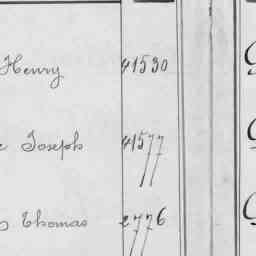 Henry 41530
Joseph 41577
Thomas 2776